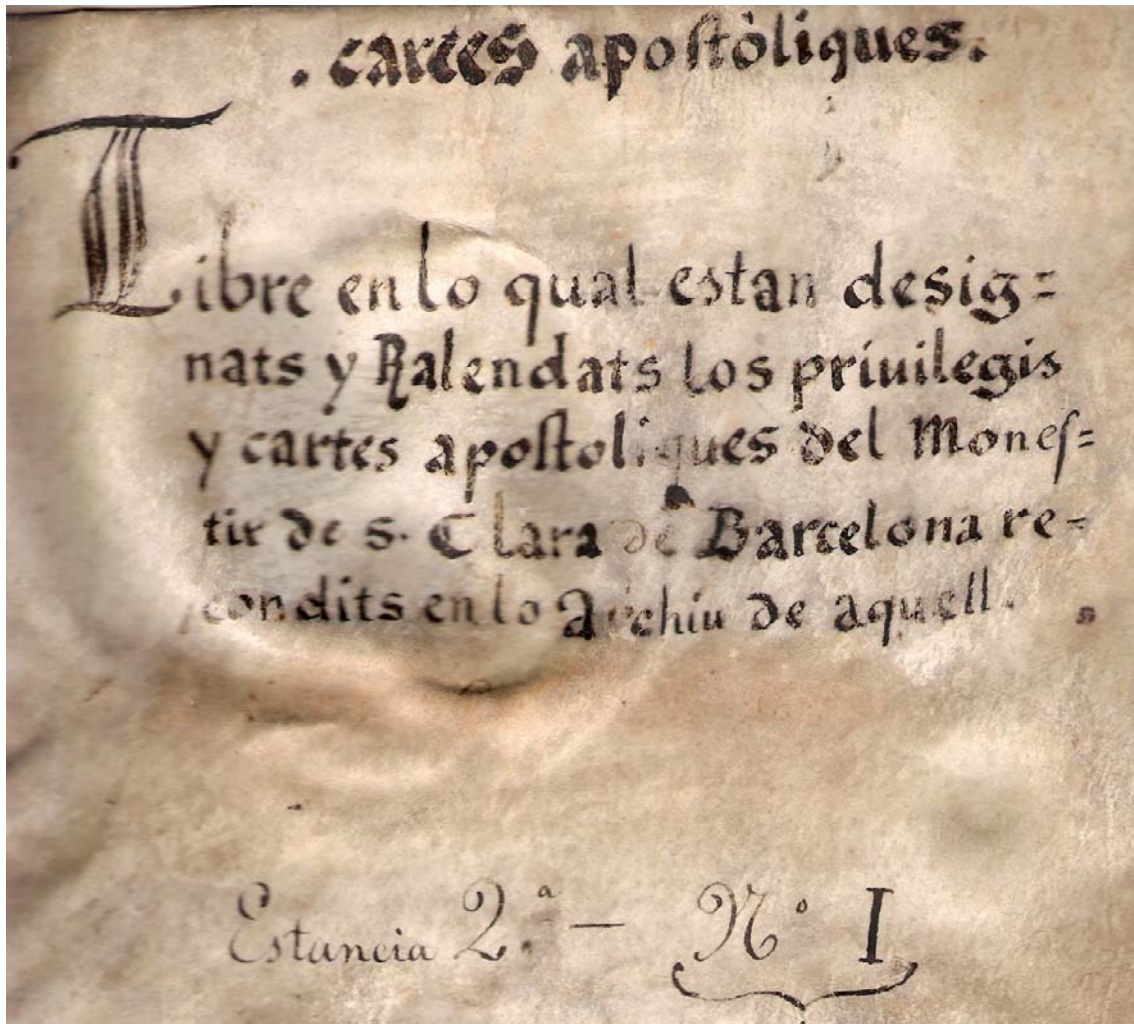 . cartes apostòliques.
Llibre en lo qual estan desig=
nats y Kalendats los priuilegis
y cartes apostoliques del Mones=
tir de S. Clara de Barcelona re=
condits en lo Archiu de aquell.
Estancia 2.ª — Nº I